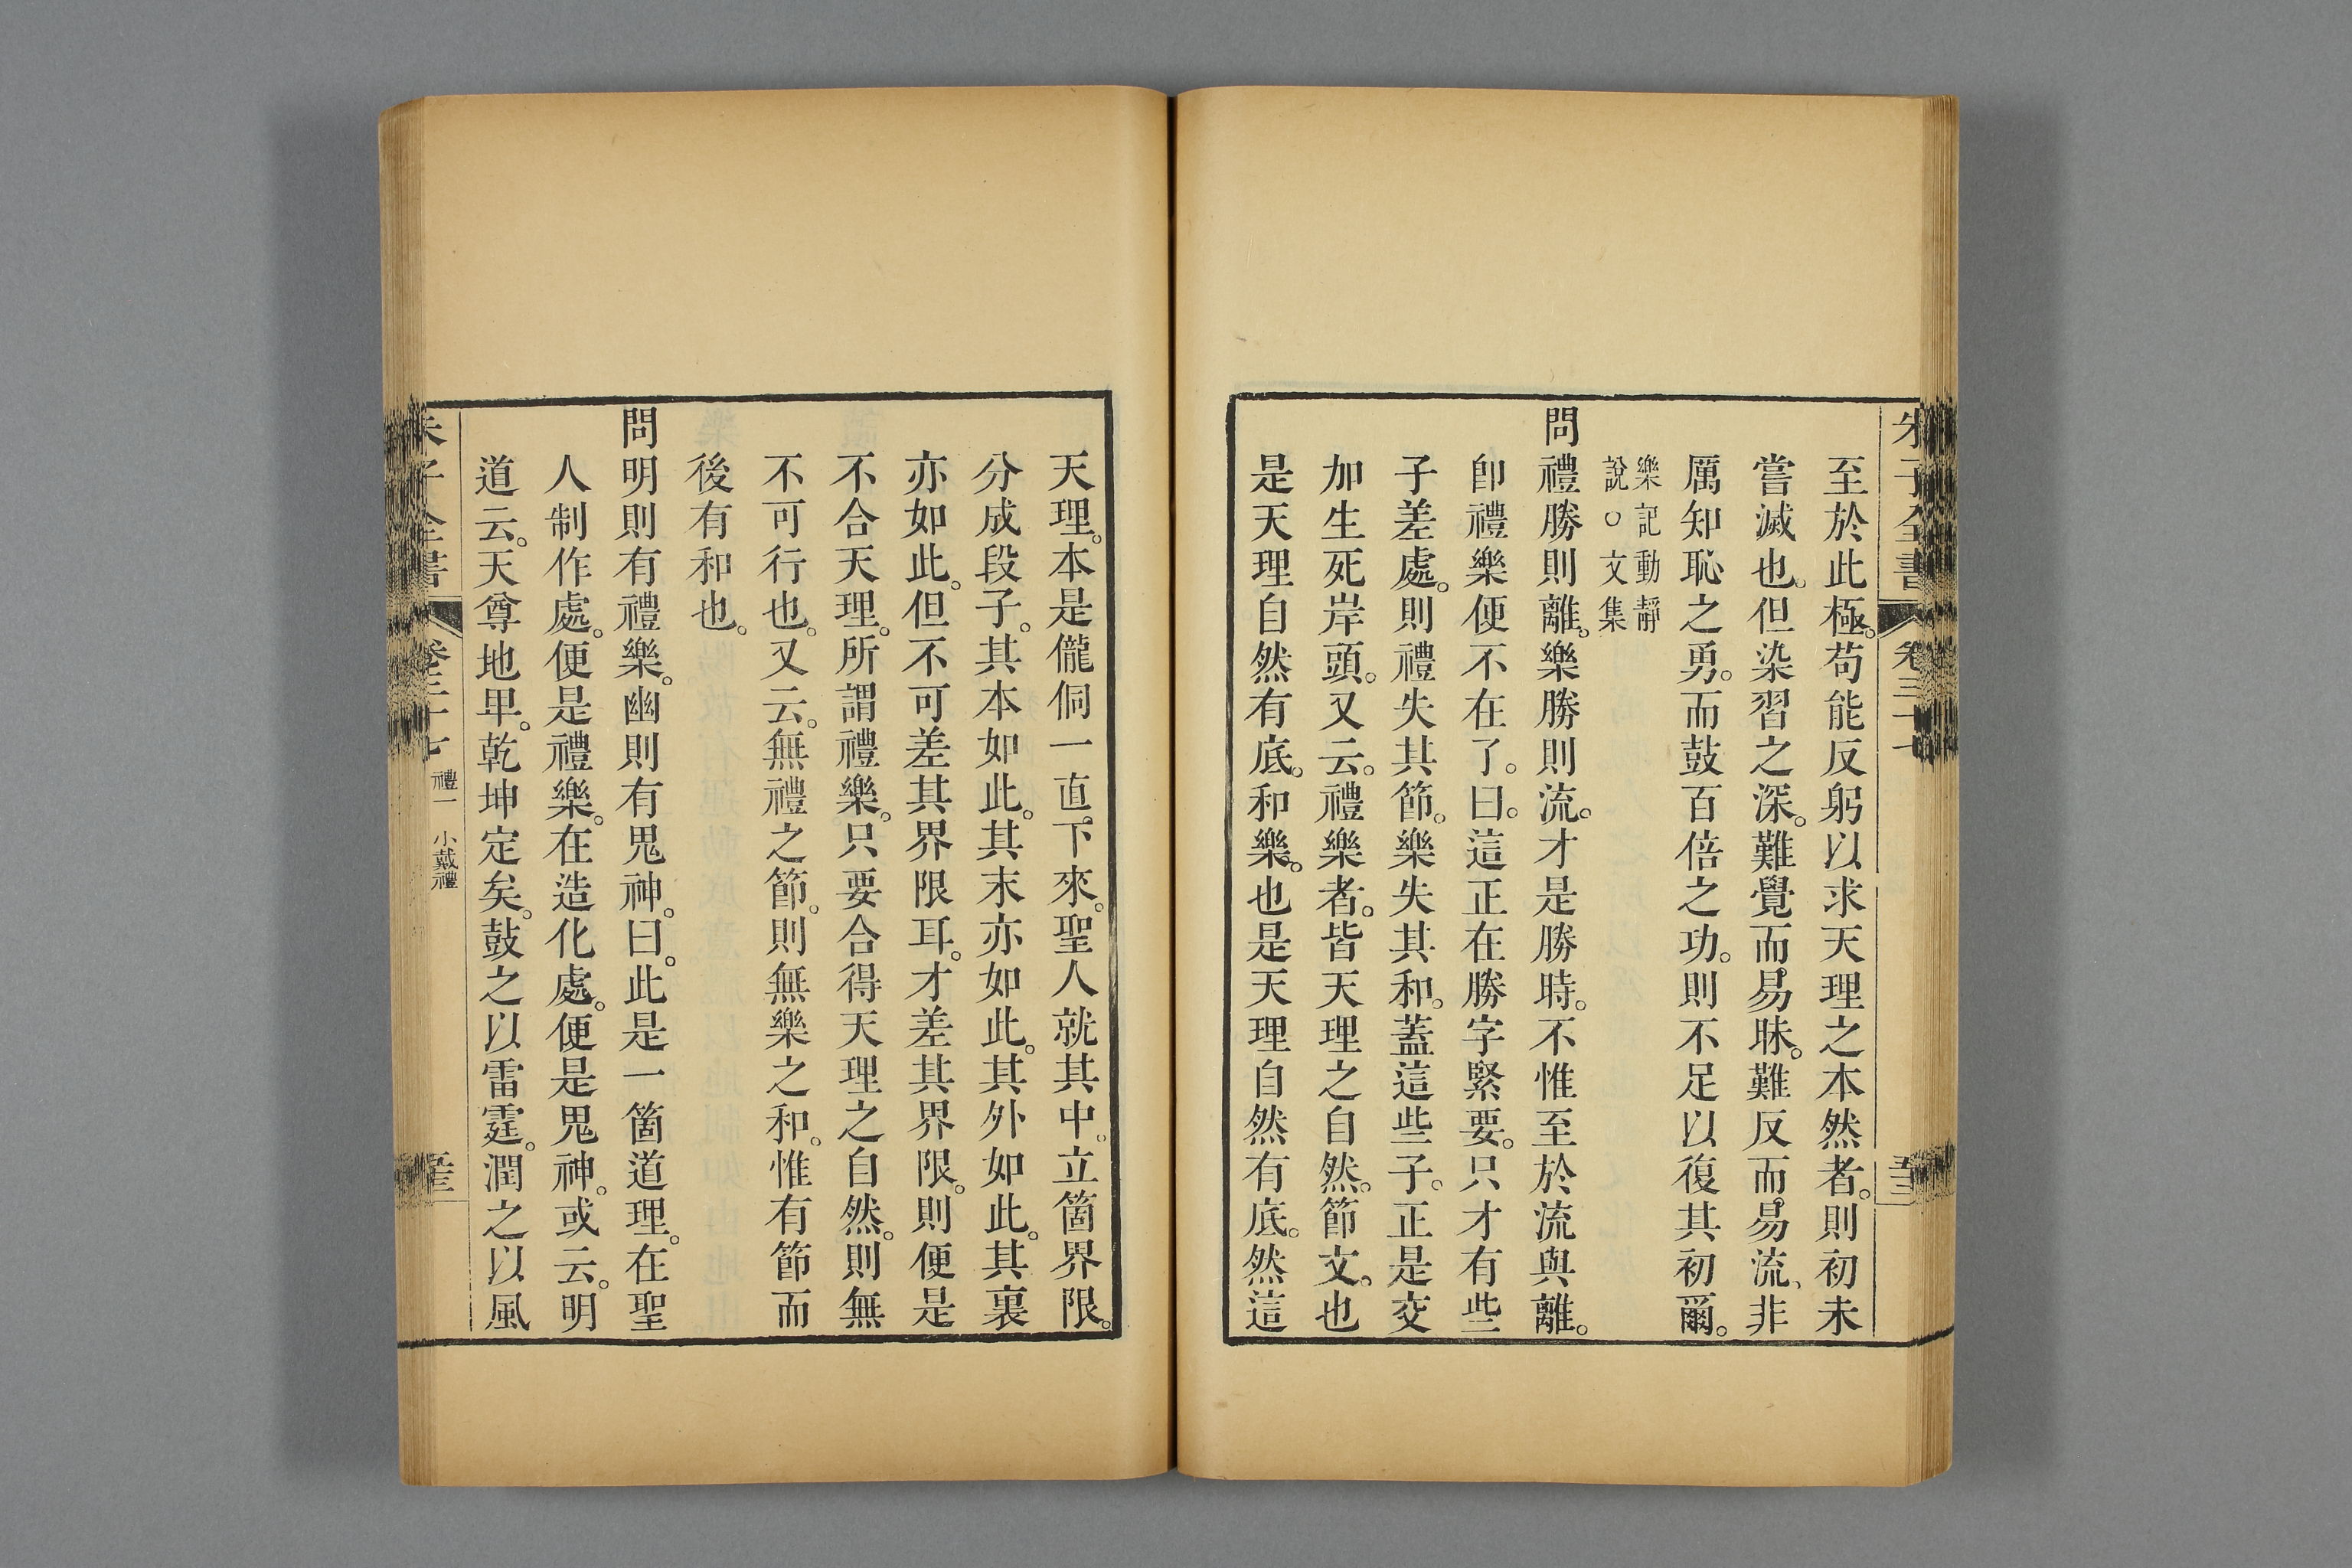 朱子全書 卷三十七
至於此極。苟能反躬以求天理之本然者。則初未
嘗滅也。但染習之深。難覺而易昧。難反而易流、非
厲知恥之勇。而鼓百倍之功。則不足以復其初爾。
樂記動靜
說○文集
問禮勝則離。樂勝則流。才是勝時。不惟至於流與離。
卽禮樂便不在了。曰。這正在勝字緊要。只才有些
子差處。則禮失其節。樂失其和。蓋這些子。正是交
加生死岸頭。又云。禮樂者。皆天理之自然。節文。也
是天理自然有底。和樂。也是天理自然有底。然這
天理。本是儱侗一直下來。聖人就其中。立箇界限。
分成段子。其本如此。其末亦如此。其外如此。其裏
亦如此。但不可差其界限耳。才差其界限。則便是
不合天理。所謂禮樂。只要合得天理之自然。則無
不可行也。又云。無禮之節。則無樂之和。惟有節而
後有和也。
問明則有禮樂。幽則有鬼神。曰。此是一箇道理。在聖
人制作處。便是禮樂。在造化處。便是鬼神。或云。明
道云。天尊地卑。乾坤定矣。鼓之以雷霆。潤之以風
朱子全書 卷三十七 禮一 小戴禮